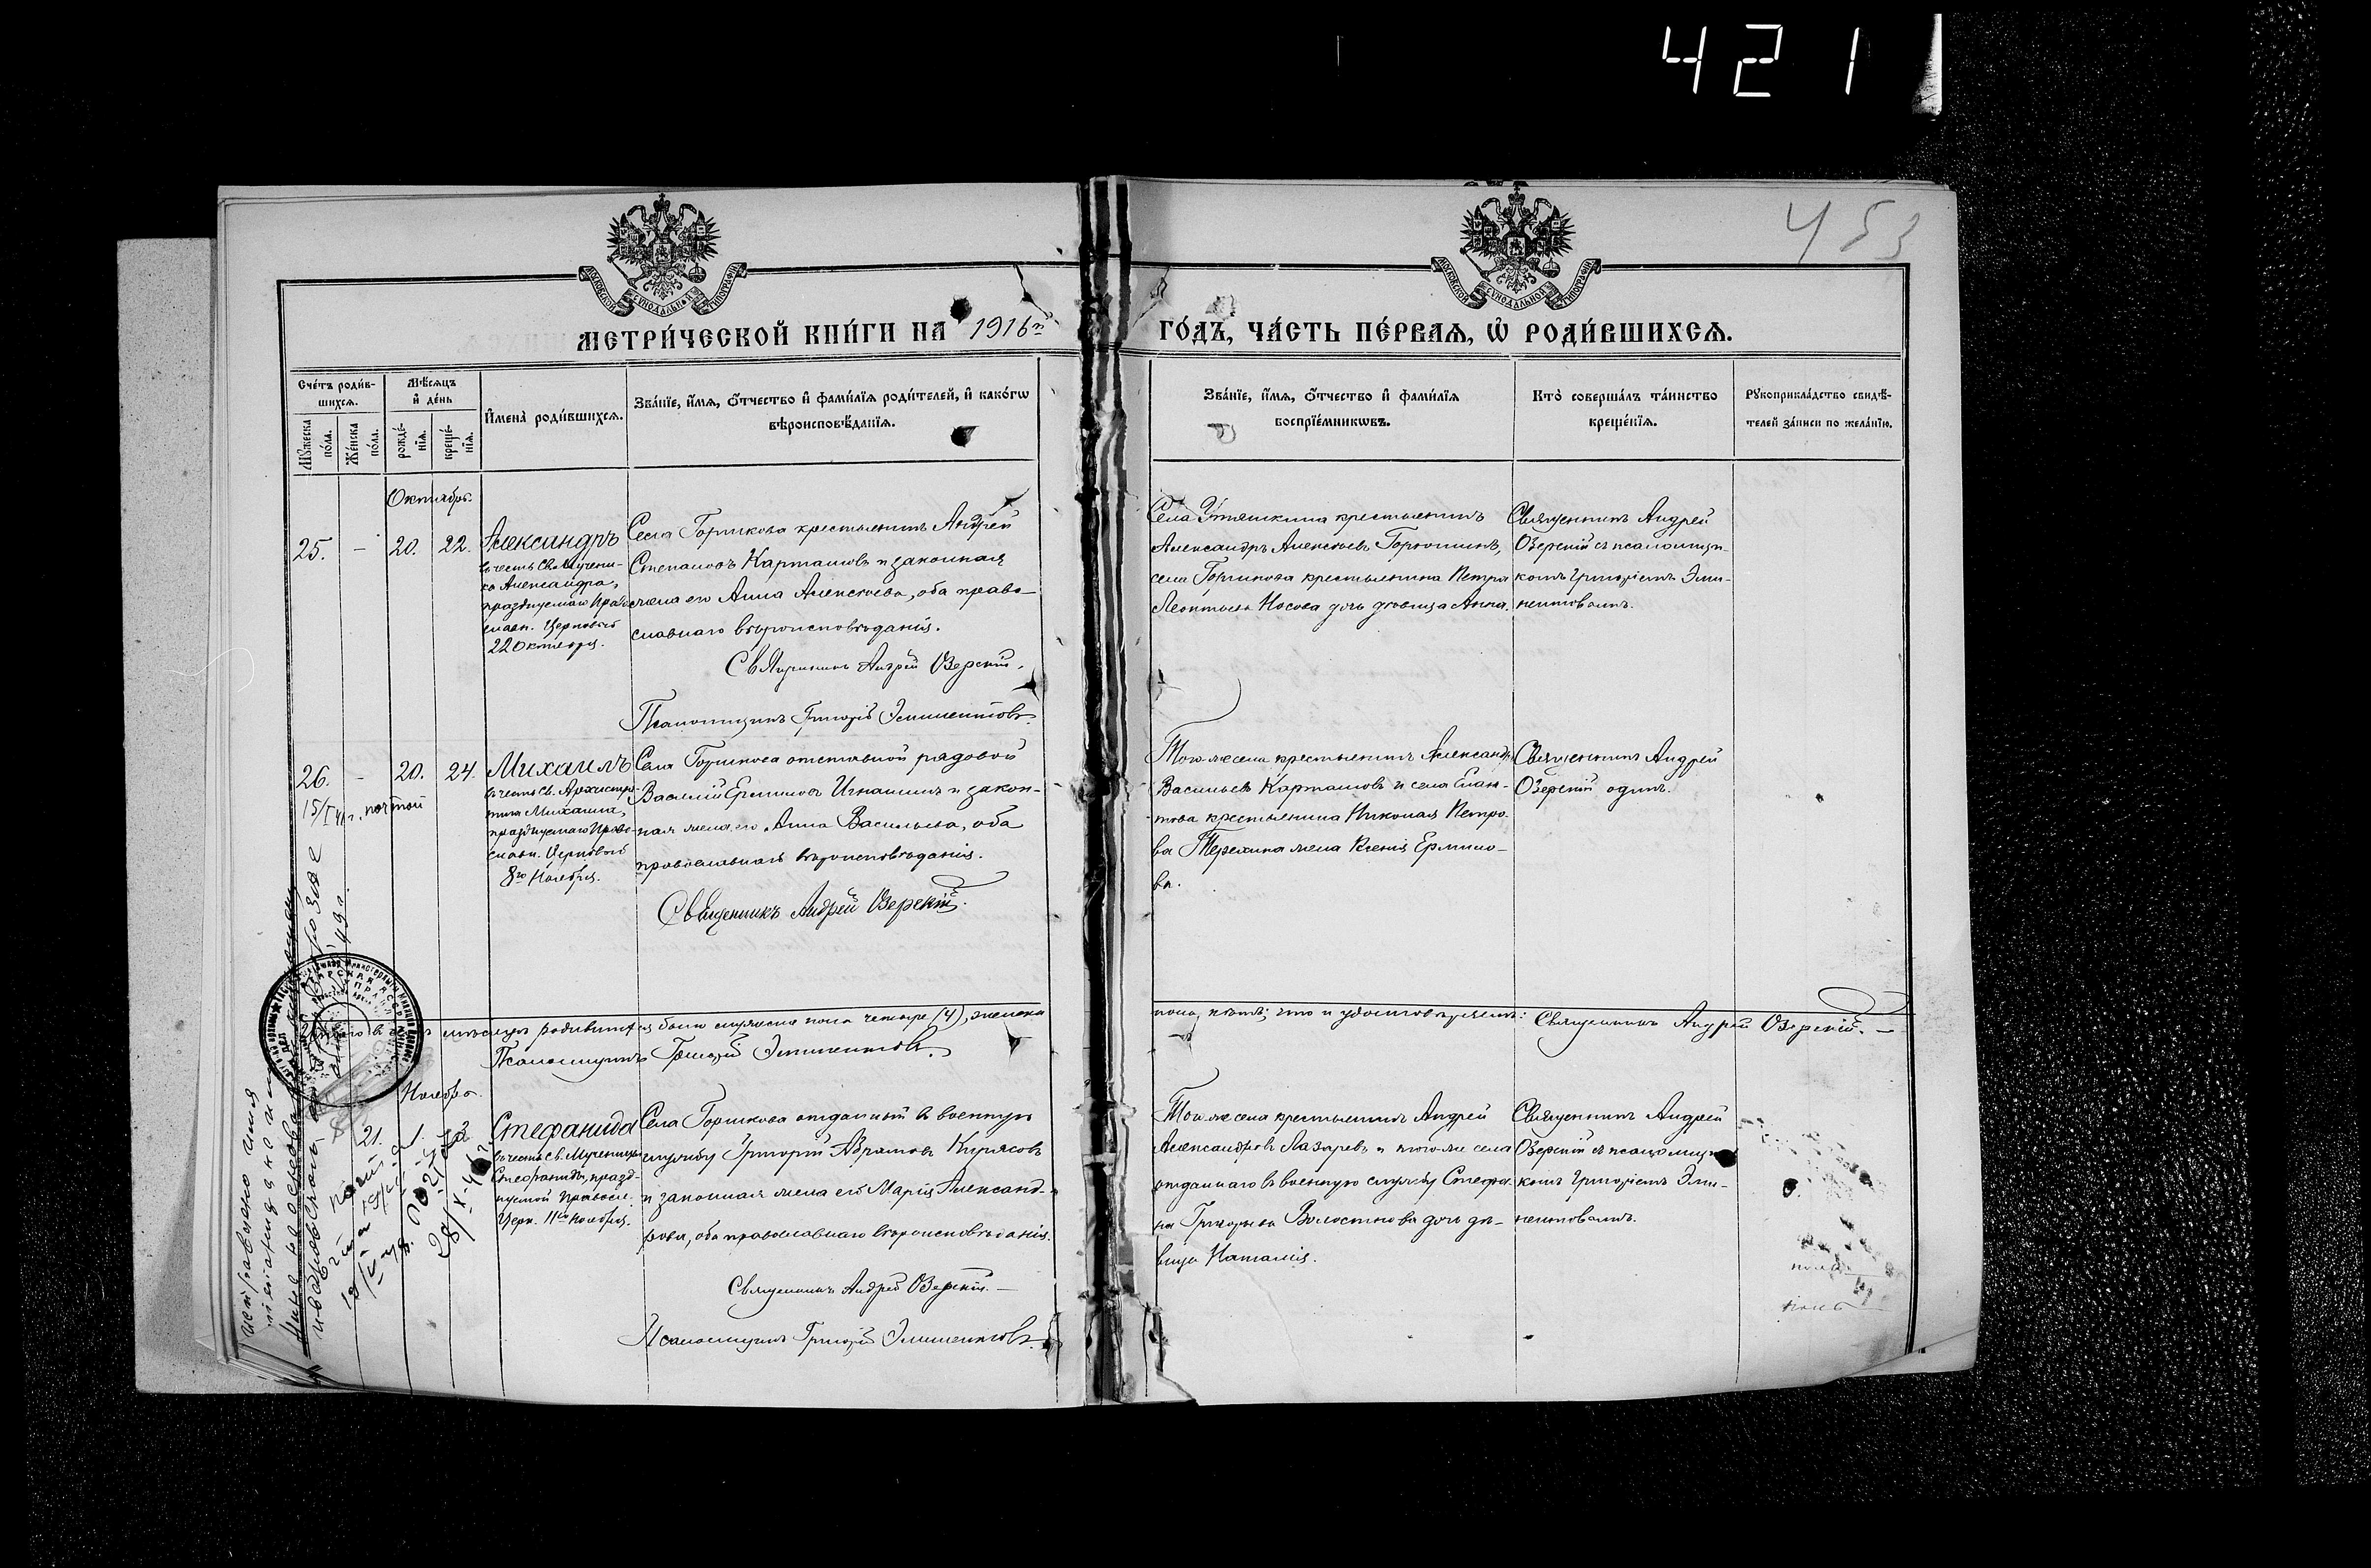 421
453
МОСКОВСКОЙ СУНОДАЛЬНОЙ ТИПОГРАФІИ
МОСКОВСКОЙ СУНОДАЛЬНОЙ ТИПОГРАФІИ
МЕТРИ́ЧЕСКОЙ КНИ́ГИ НА 1916й
ГО́ДЪ, ЧА́СТЬ ПЕ́РВАѦ, Ѡ҆ РОДИ́ВШИХСѦ.
Сче́тъ роди́в-
шихсѧ.
Мꙋ́жеска по́ла.
Же́нска по́ла.
Мѣ́сѧцъ
и҆ де́нь
рожде́-
нїѧ.
креще́-
нїѧ.
И҆мена̀ роди́вшихсѧ.
Зва́нїе, и҆́мѧ, о҆́тчество и҆ фами́лїѧ роди́телей, и҆ како́гѡ
вѣроисповѣ́данїѧ.
Зва́нїе, и҆́мѧ, о҆́тчество и҆ фами́лїѧ
воспрїе́мникѡвъ.
Кто̀ соверша́лъ та́инство
креще́нїѧ.
Рꙋкоприкла́дство свидѣ́-
телей за́писи по жела́нїю.
Октябрь.
25. - 20. 22.
Александръ
въ честь Св. Мучени-
ка Александра,
празднуемаго Право-
славн. Церковью
22 октября.
Села Горшкова крестьянинъ Андрей
Степановъ Карташовъ и законная
жена его Анна Алексѣева, оба право-
славнаго вѣроисповѣданія.
Священникъ Андрей Озерскій.
Псаломщикъ Григорій Эпишентовъ.
Села Утяшкина крестьянинъ
Александръ Алексѣевъ Горюшинъ,
села Горшкова крестьянина Петра
Леонтьева Носова дочь дѣвица Анна.
Священникъ Андрей
Озерскій съ псаломщи-
комъ Григоріемъ
26. - 20. 24.
15/I 41 г. почтой
Михаилъ
въ честь Св. Архистра-
тига Михаила,
празднуемаго Право-
славн. Церковью
8го Ноября.
Села Горшкова отставной рядовой
Василій Ермиловъ Игнашинъ и закон-
ная жена его Анна Васильева, оба
православнаго вѣроисповѣданія.
Священникъ Андрей Озерскій.
Того же села крестьянинъ Александръ
Васильевъ Карташовъ и села Елан-
това крестьянина Николая Петро-
ва Терехина жена Ксенія Ермило-
ва.
Священникъ Андрей
Озерскій одинъ.
мѣсяцѣ родившихся было мужеска пола четыре (4), женска
пола, нѣтъ; что и удостовѣряемъ: Священникъ Андрей Озерскій.
Псаломщикъ Григорій
Ноябрь.
21. 1. 3.
Стефанида
въ честь Св. Мученицы
Стефаниды, празд-
нуемой Правосл.
Церк. 11го ноября.
Села Горшкова отданный въ военную
службу Григорій Абрамовъ Кирясовъ
и законная жена его Марія Александ-
рова, оба православнаго вѣроисповѣданія.
Священникъ Андрей Озерскій.
Псаломщикъ Григорій
Того же села крестьянинъ Андрей
Александровъ Лазаревъ и того же села
отданнаго въ военную службу Стефа-
на Григорьева Волостнова дочь дѣ-
вица Наталія.
Священникъ Андрей
Озерскій съ псаломщи-
комъ Григоріемъ
исправлено имя
28/X-46 г.